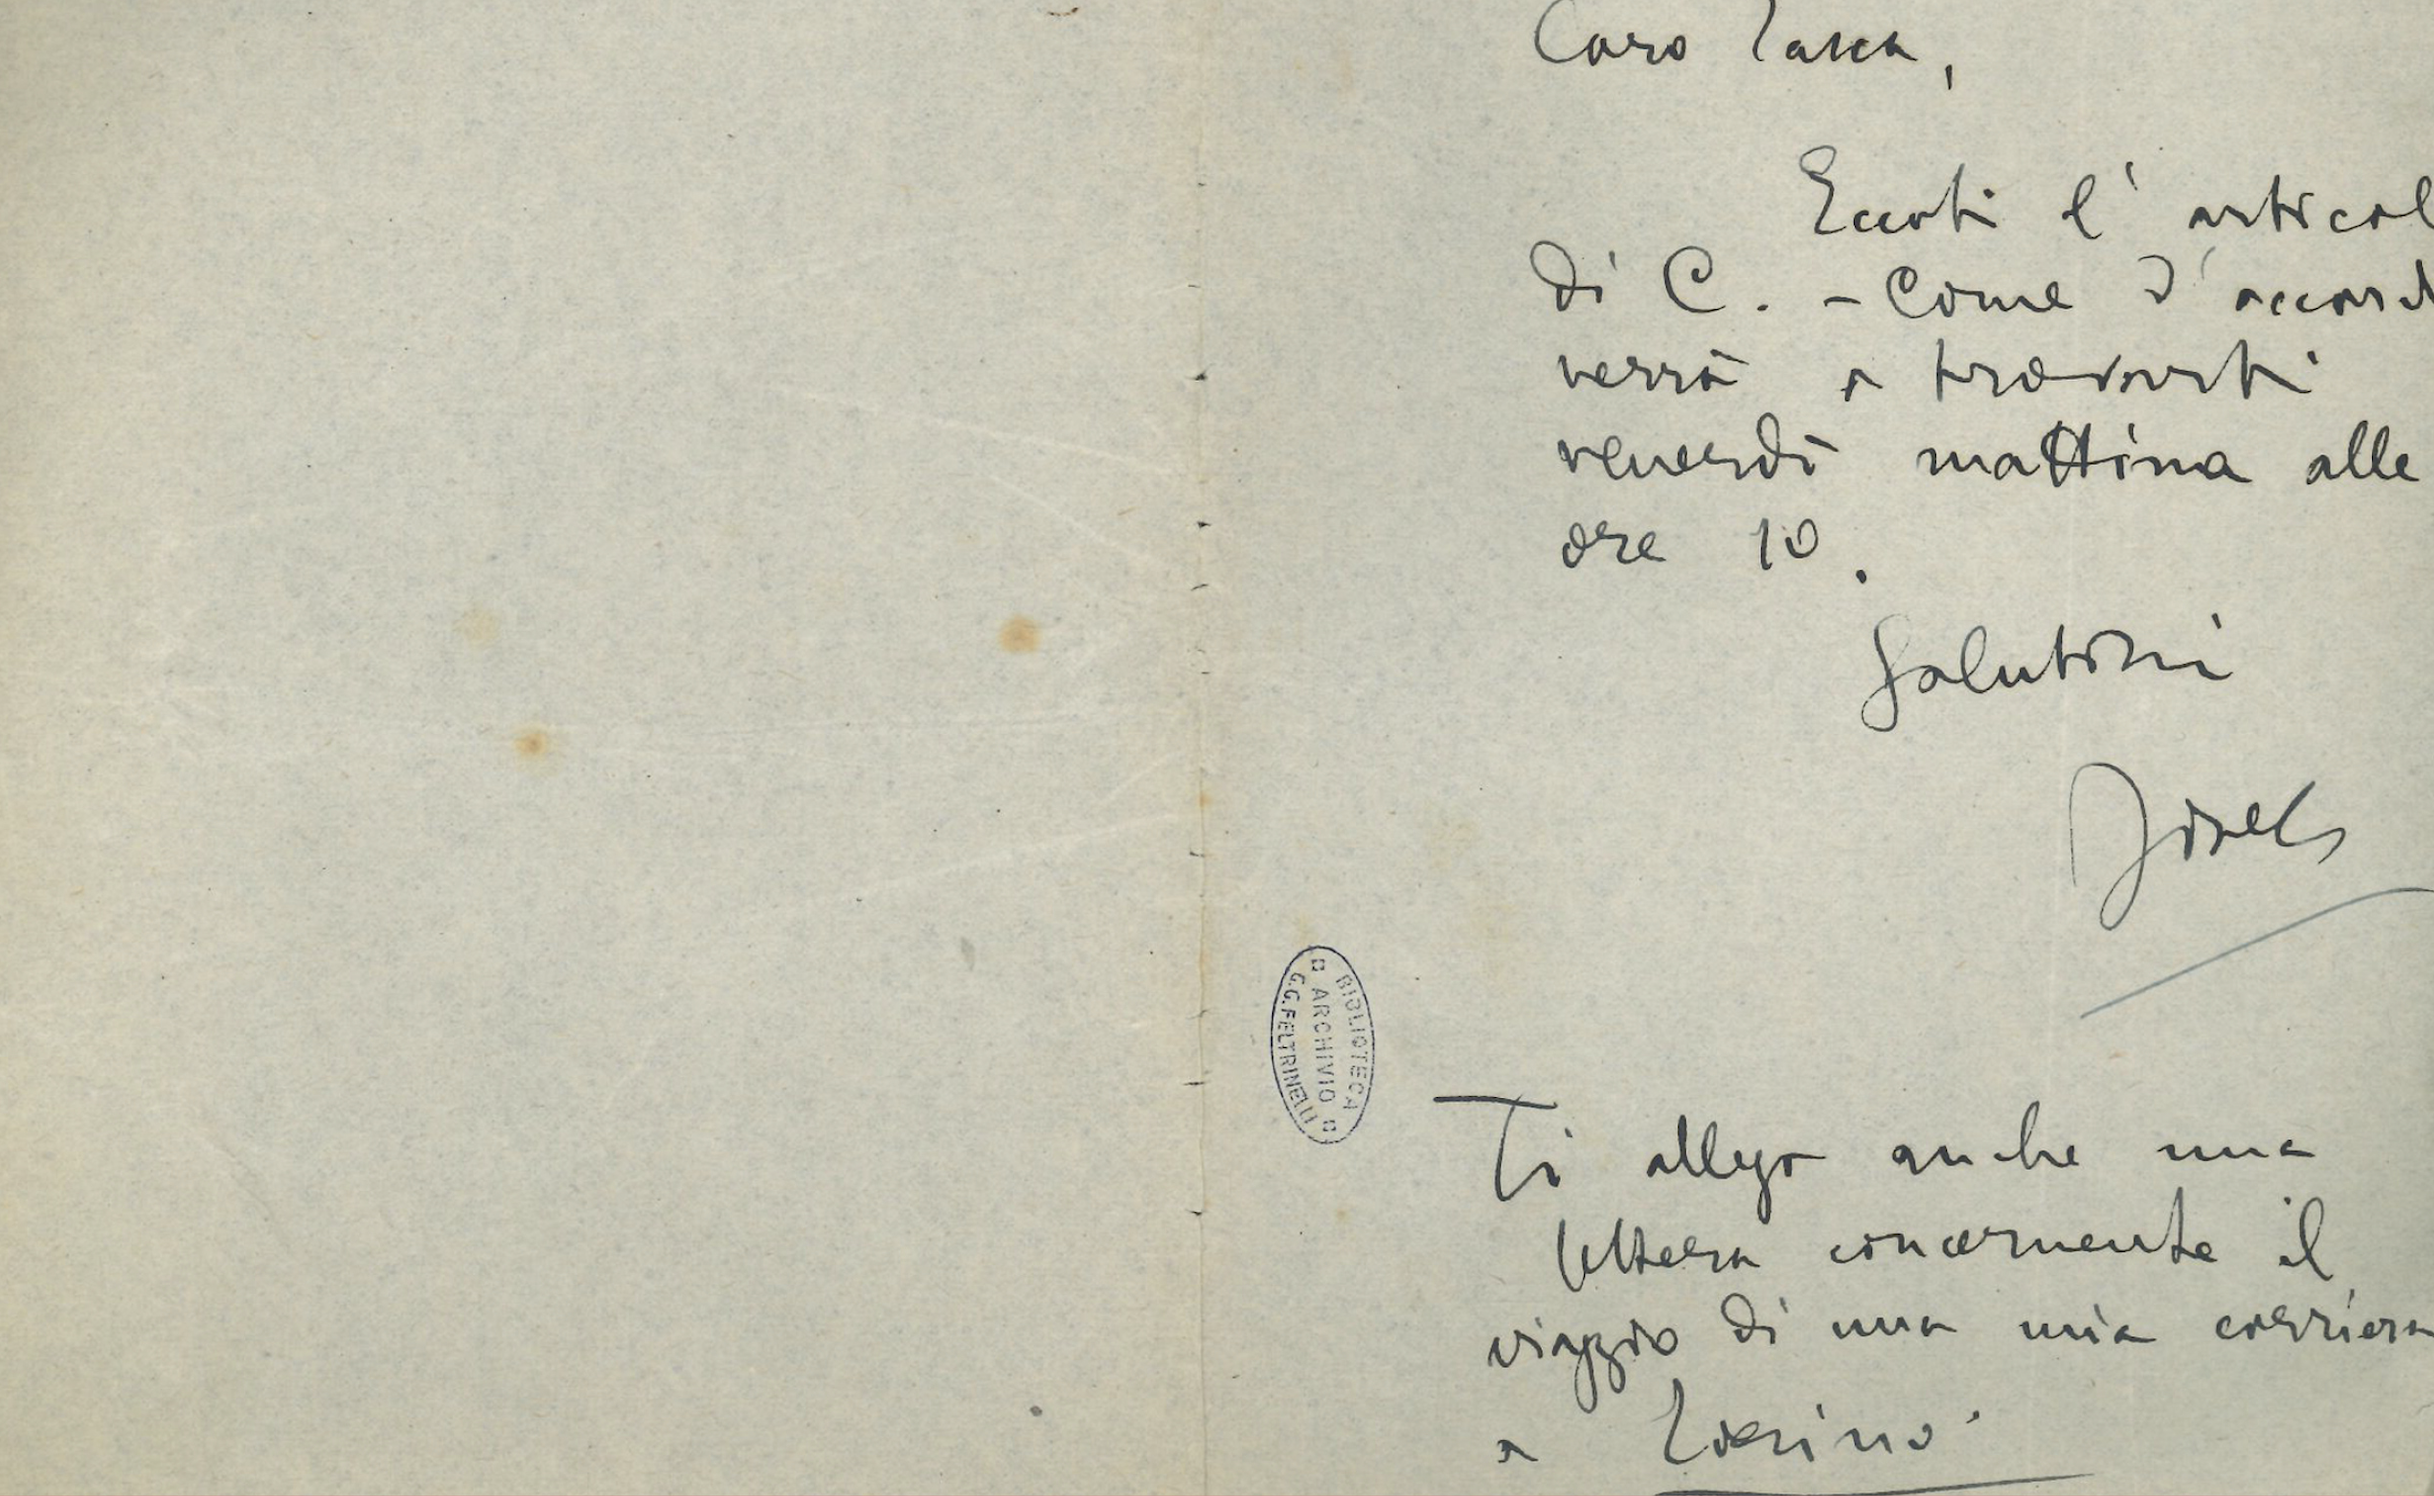 Caro Tasca,
Eccoti l'articol
di C. - Come d'accord
verrò a trovarti
venerdì mattina alle
ore 10.
Saluti
BIBLIOTECA
ARCHIVIO
G.G. FELTRINELLI
Ti allego anche una
lettera concernente il
viaggio di una mia corriera
a Torino.